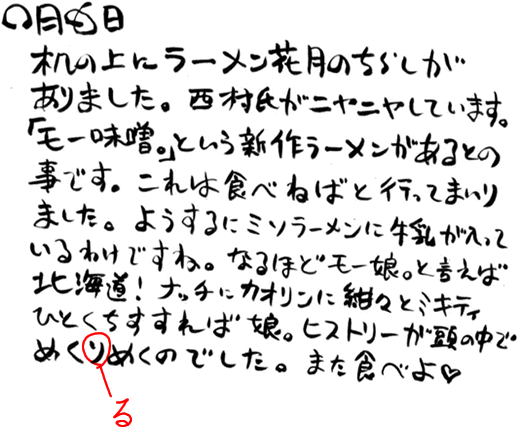 〇月〇日
机の上にラーメン花月のちらしが
ありました。西村氏がニヤニヤしています。
「モー味噌。」という新作ラーメンがあるとの
事です。これは食べねばと行ってまいり
ました。ようするにミソラーメンに牛乳が入って
いるわけですね。なるほどモー娘。と言えば
北海道!ナッチにカオリンに紺々とミキティ
ひとくちすすれば娘。ヒストリーが頭の中で
めくりめくのでした。また食べよ♡
る